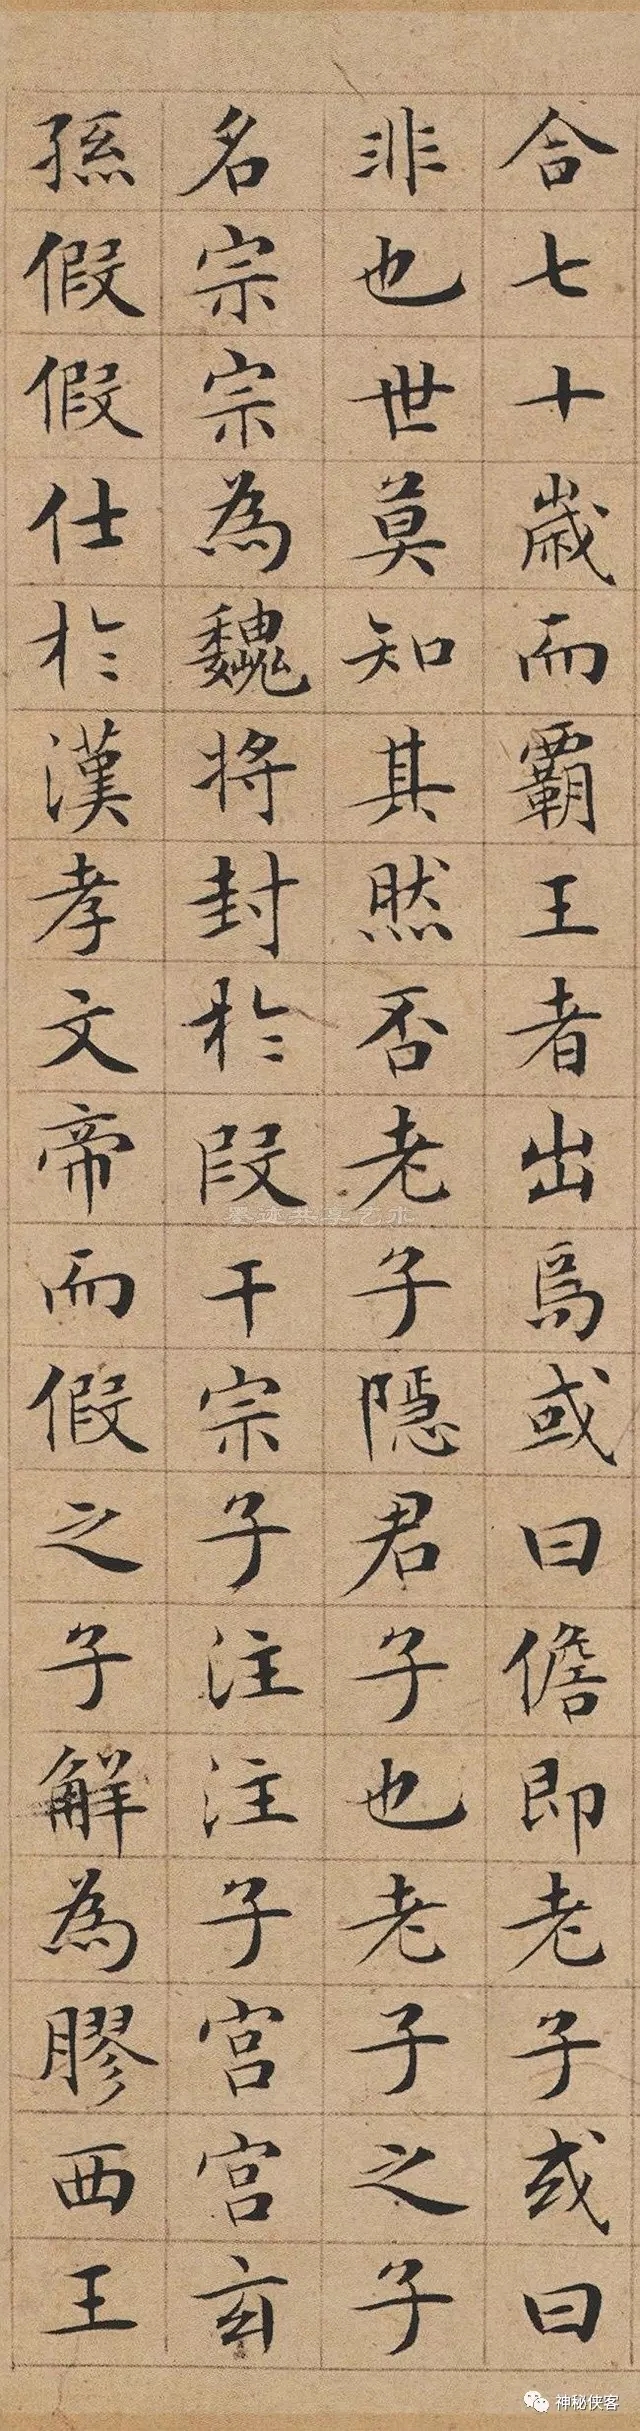 合七十歲而霸王者出焉或曰儋即老子或曰
非也世莫知其然否老子隱君子也老子之子
名宗宗為魏將封於段干宗子注注子宫宫玄
孫假假仕於漢孝文帝而假之子解為膠西王
墨迹共享艺术
神秘侠客